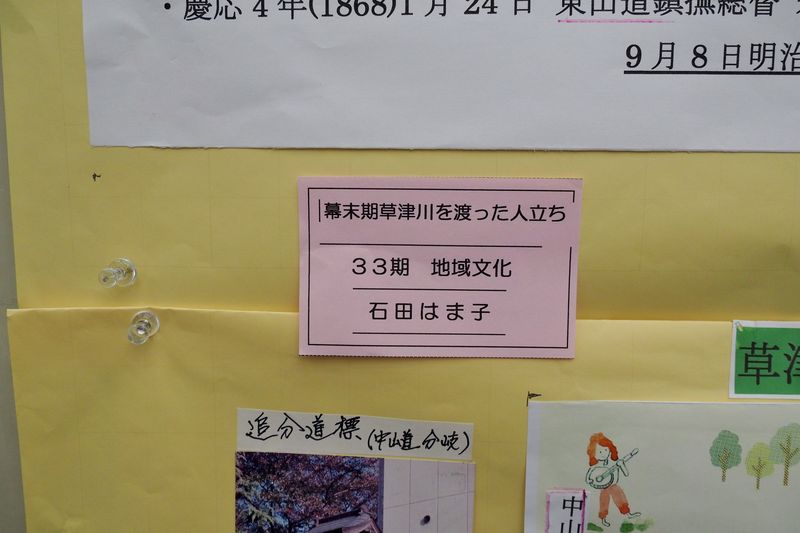 ・慶応4年(1868)1月24日 東山道鎮撫総督
9月8日明治
幕末期草津川を渡った人立ち
33期 地域文化
石田はま子
追分道標(中山道分岐)
草津
中山